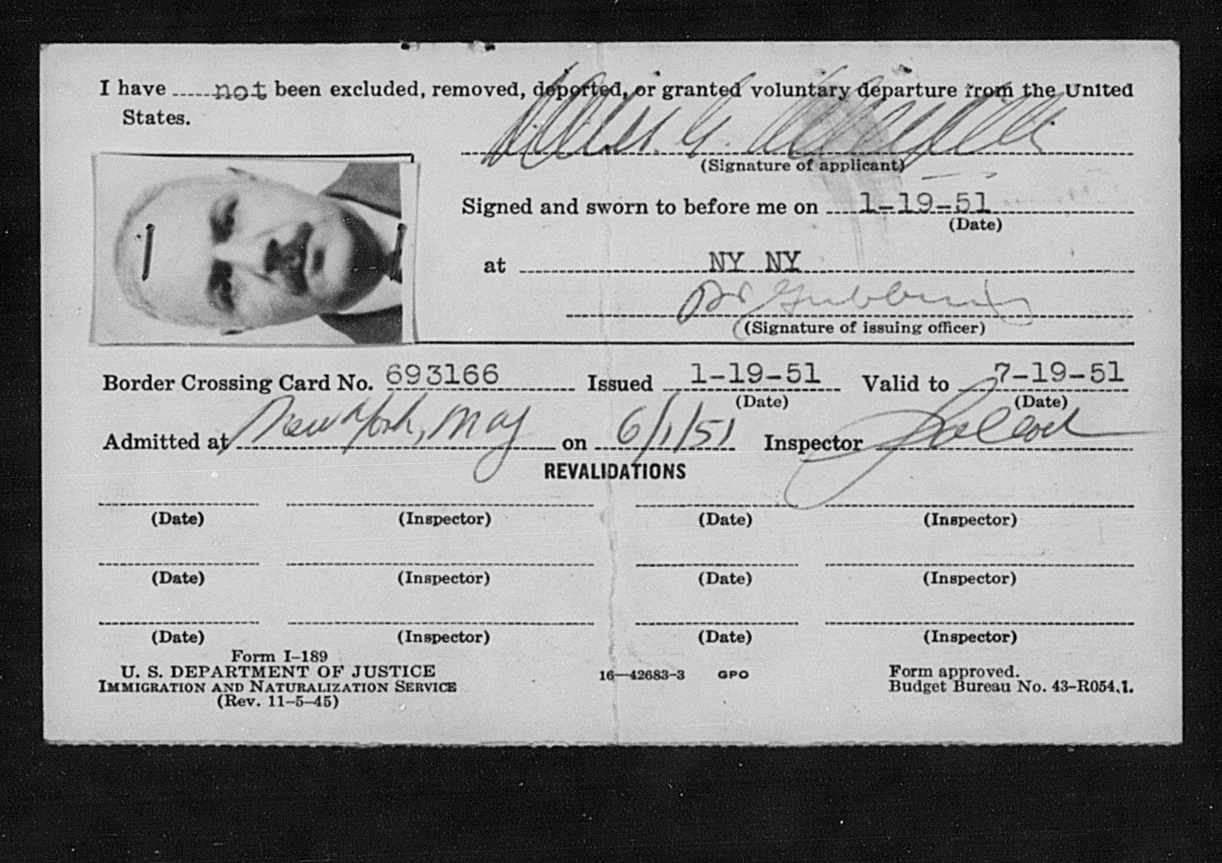 I have not been excluded, removed, deported, or granted voluntary departure from the United
States.
(Signature of applicant)
Signed and sworn to before me on 1-19-51
(Date)
at NY NY
(Signature of issuing officer)
Border Crossing Card No. 693166 Issued 1-19-51 Valid to 7-19-51
(Date) (Date)
Admitted at New York, on 6/1/51 Inspector
REVALIDATIONS
(Date) (Inspector) (Date) (Inspector)
(Date) (Inspector) (Date) (Inspector)
(Date) (Inspector) (Date) (Inspector)
Form I-189
U. S. DEPARTMENT OF JUSTICE 16—42683-3 GPO Form approved.
IMMIGRATION AND NATURALIZATION SERVICE Budget Bureau No. 43-R054.1.
(Rev. 11-5-45)